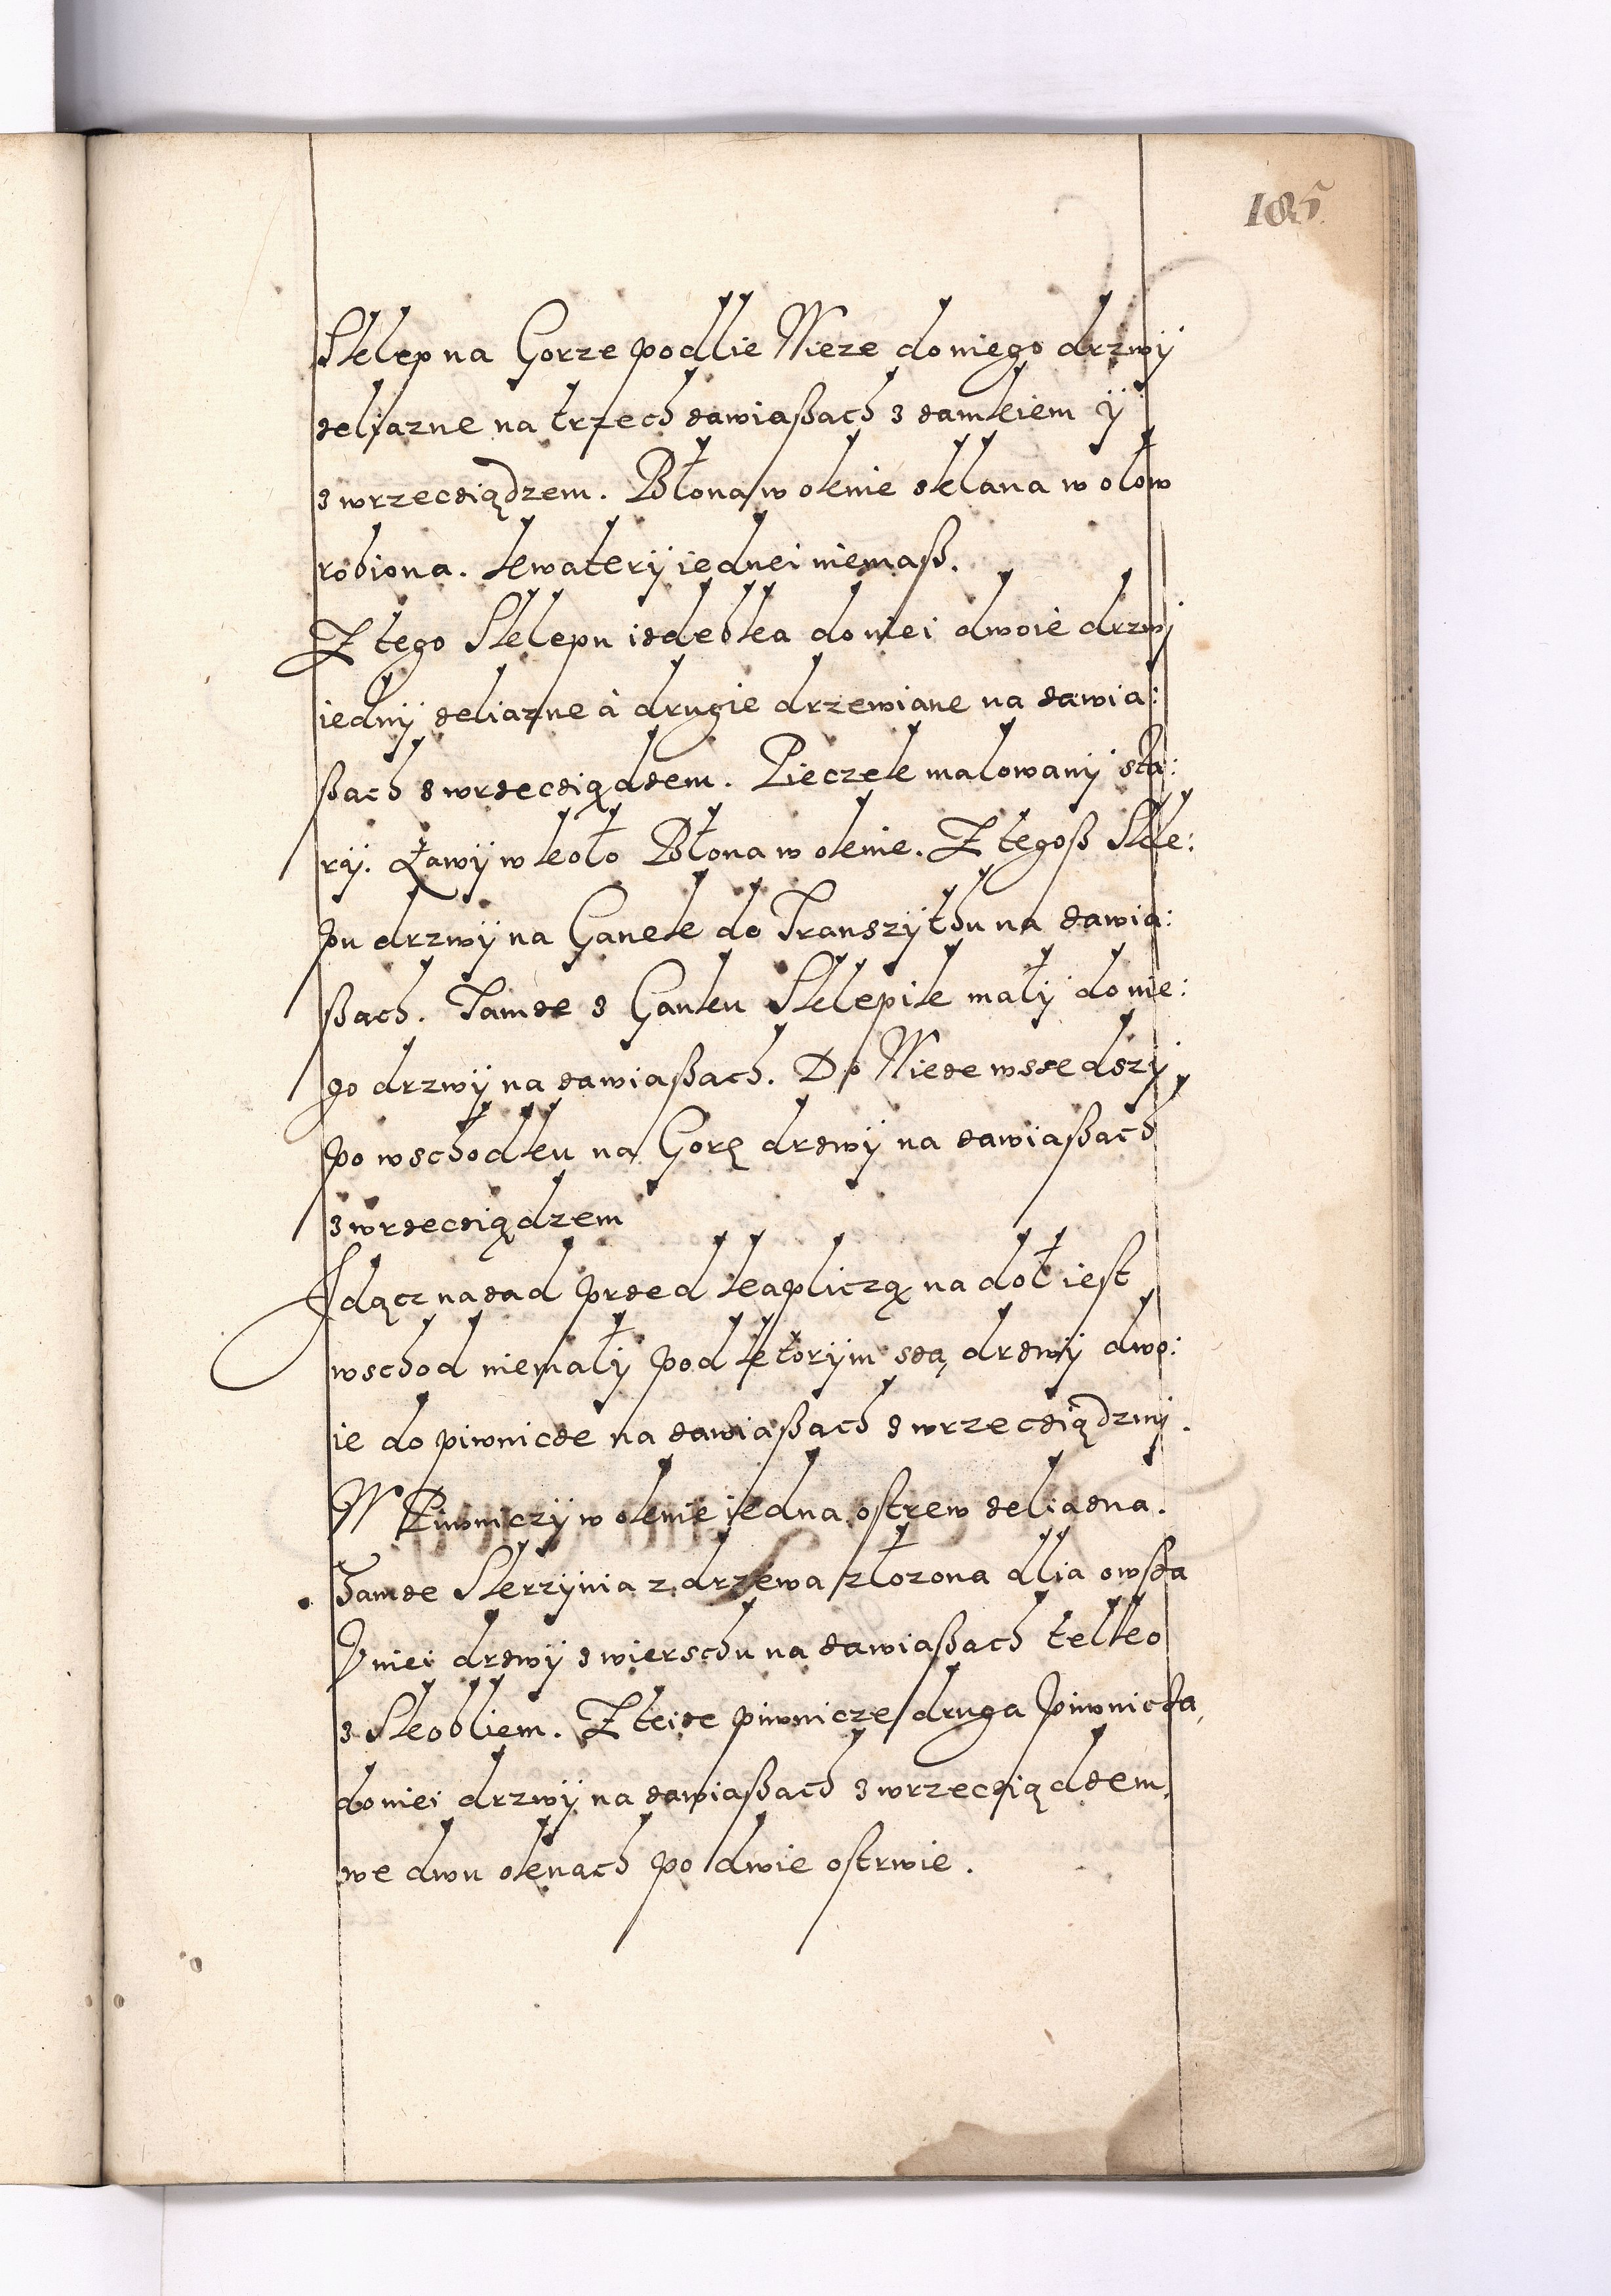 185
Sklep na Gorze podlie Wieze do niego drzwÿ
zeliazne na trzech zawiaßach z zamkiem ÿ
z wrzecziądzem. Błona w oknie sklana w ołow
robiona. kwaterÿ iednei niemaß.
Z tego Sklepu izdebka do niei dwoie drzwÿ
iednÿ zeliazne à drugie drzewiane na zawia:
ßach z wrzecziądzem. Pieczek malowanÿ sta:
rÿ. Ławÿ w koło Błona w oknie. Z tegoß Skle:
pu drzwÿ na Ganek do Transzÿthu na zawia:
ßach. Tamze z Ganku Sklepik małÿ do nie:
go drzwÿ na zawiaßach. Do Wieze wszedszÿ
po wschodku na Gorę drzwÿ na zawiaßach
z wrzecziądzem
Idącz nazad przed kapliczą na doł iest
wschod niemałÿ pod ktorÿm sza drzwÿ dwo:
ie do piwnicze na zawiaßach z wrzecziądzmÿ.
W Piwniczÿ w oknie iedna ostrew zeliazna.
Tamze Skrzÿnia z drzewa złozona dlia owsza
V niei drzwÿ z wierschu na zawiaßach telko
z Skobliem. Z teize piwnicze druga piwniczka,
do niei drzwÿ na zawiaßach z wrzecziądzem,
we dwu oknach po dwie ostrwie.